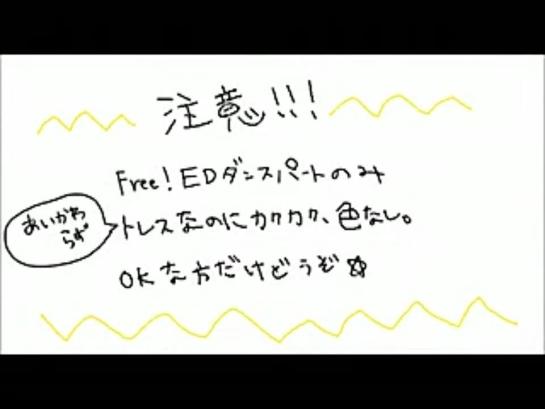 注意!!!
Free!EDダンスパートのみ
あいかわ
らず
トレスなのにカクカク、色なし。
OKな方だけどうぞ☆